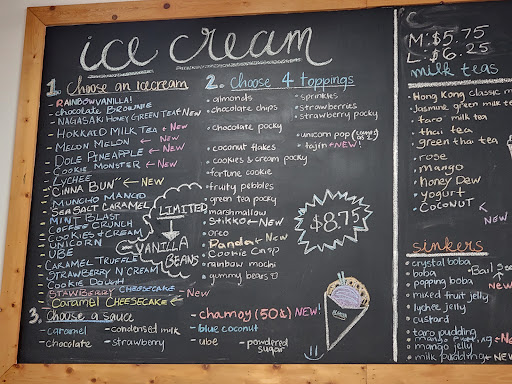 ice cream
1. Choose an icecream
- RAINBOWVANILLA!
- chocolate BROWNIE
- NAGASAKI HONEY GREEN TEA ← New
- HOKKAIDO MILK TEA ← New
- MELON MELON ← New
- DOLE PINEAPPLE ← New
- COOKIE MONSTER ← New
- LYCHEE
- "CINNA BUN" ← New
- MUNCHO MANGO
- SEA SALT CARAMEL
- MINT BLAST
- COFFEE CRUNCH
- COOKIES & CREAM
- UNICORN
- UBE
- CARAMEL TRUFFLE
- STRAWBERRY N' CREAM
- COOKIE DOUGH
- STAWBERRY CHEESECAKE
- Caramel CHEESECAKE ← New
LIMITED
VANILLA
BEANS
2. Choose 4 toppings
• almonds
• chocolate chips
• chocolate pocky
• coconut flakes
• cookies & cream pocky
• fortune cookie
• fruity pebbles
• green tea pocky
• marshmallow
• Stikko ← New
• oreo
• Panda ← New
• Cookie Crisp
• rainbow mochi
• gummy bears
• sprinkles
• strawberries
• strawberry pocky
• unicorn pop (counts as 2)
• tajin ← NEW!
$8.75
3. Choose a sauce
- caramel
- chocolate
- condensed milk
- strawberry
- chamoy (50¢) NEW!
- blue coconut
- ube
- powdered sugar
M: $5.75
L: $6.25
milk teas
• Hong Kong classic m
• Jasmine green milk te
• taro milk tea
• thai tea
• green thai tea
• rose
• mango
• honey Dew
• yogurt
• COCONUT ← NEW
sinkers
• crystal boba
• boba
• popping boba
• mixed fruit jelly
• lychee jelly
• custard
• taro pudding
• mango pudding ← New
• mango jelly
• milk pudding ← New